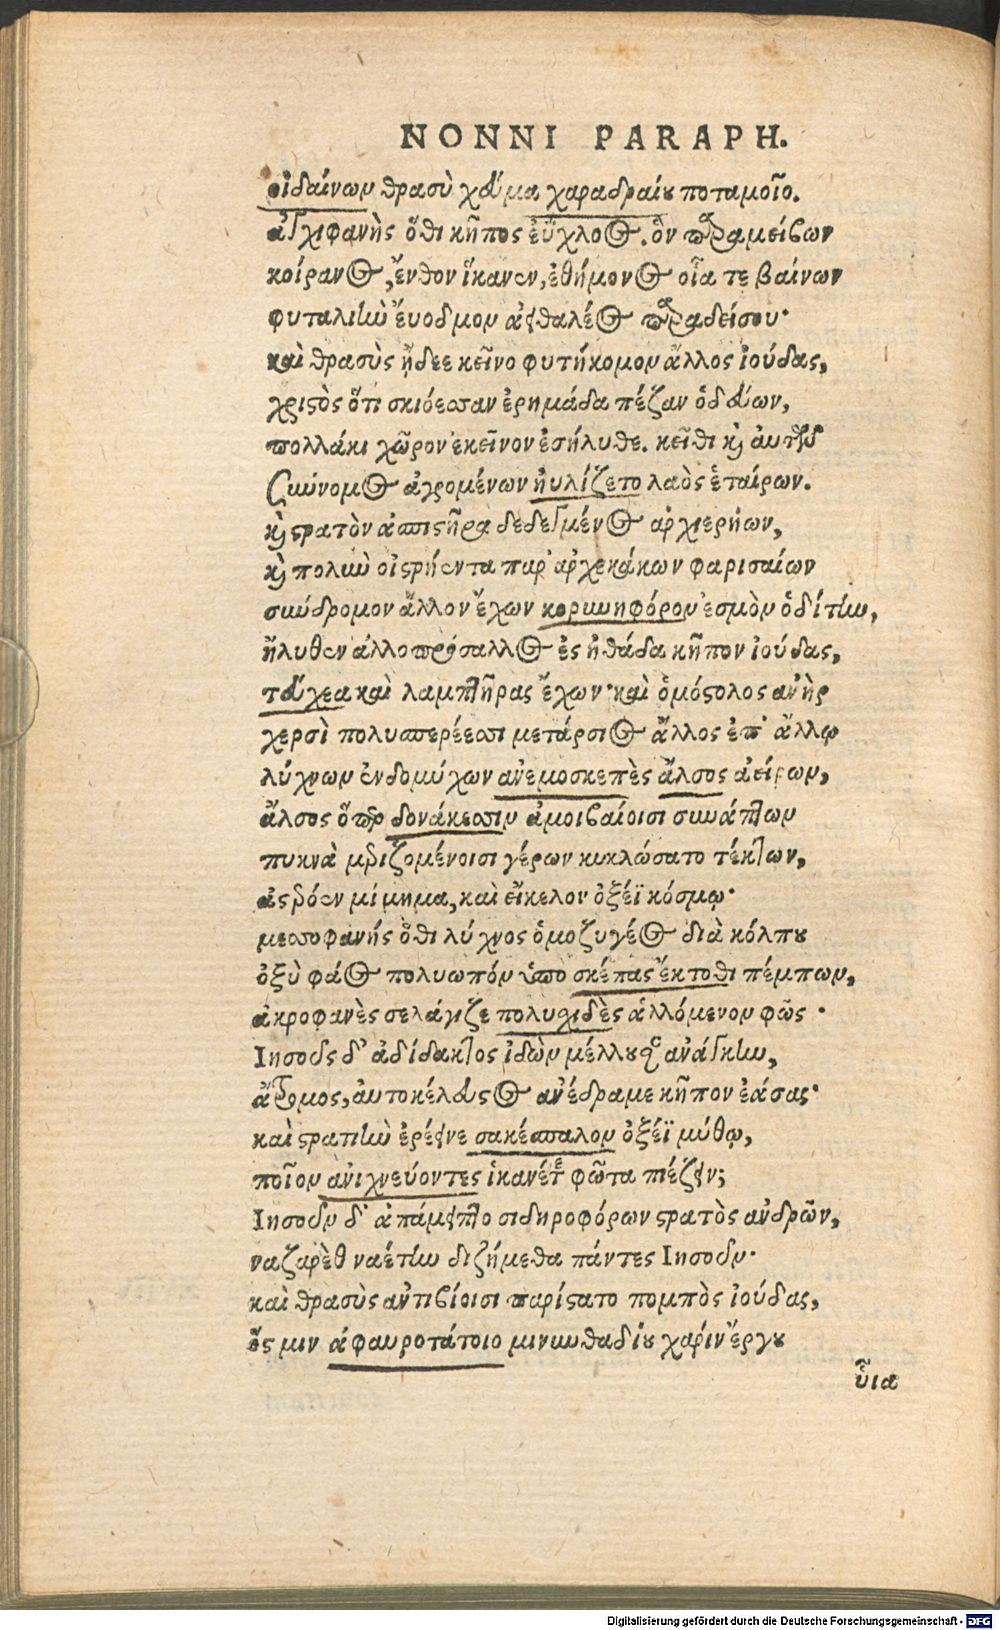 NONNI PARAPH.
οἰδαίνων θρασὺ χεῦμα χαραδραίου ποταμοῖο.
ἀγχιφανὴς ὅθι κῆπος εὔχλοος. ὃν παραμείβων
κοίρανος, ἔνθον ἵκανεν, ἐθήμονος οἷά τε βαίνων
φυταλιὴν ἔυοδμον ἀειθαλέος παραδείσου·
καὶ θρασὺς ᾔδεε κεῖνο φυτήκομον ἄλλος ἰούδας,
χριστὸς ὅτι σκιόεσσαν ἐρημάδα πέζαν ὁδεύων,
πολλάκι χῶρον ἐκεῖνον ἐσήλυθε. κεῖθι καὶ αὐτοῦ
σύννομος ἀγρομένων ηὐλίζετο λαὸς ἑταίρων.
καὶ στρατὸν ἀσπιστῆρα δεδεγμένος ἀρχιερήων,
καὶ πολὺν οἰστρήεντα παρ' ἀρχεκάκων φαρισαίων
σύνδρομον ἄλλον ἔχων κορυνηφόρον ἐσμὸν ὁδίτην,
ἤλυθεν ἀλλοπρόσαλλος ἐς ἠθάδα κῆπον ἰούδας,
τεύχεα καὶ λαμπτῆρας ἔχων· καὶ ὁμόστολος ἀνὴρ
χερσὶ πολυσπερέεσσι μετάρσιος ἄλλος ἐπ' ἄλλῳ
λύχνων ἐνδομύχων ἀνεμοσκεπὲς ἄλσος ἀείρων,
ἄλσος ὅπερ δονάκεσσιν ἀμοιβαίοισι συνάπτων
πυκνὰ μεριζομένοισι γέρων κυκλώσατο τέκτων,
ἀστρόεν μίμημα, καὶ εἴκελον ὀξέϊ κόσμῳ·
μεσσοφανής ὅθι λύχνος ὁμοζυγέος διὰ κόλπου
ὀξὺ φάος πολυωπόν ὑπὸ σκέπας ἔκτοθι πέμπων,
ἀκροφανὲς σελάγιζε πολυσχιδὲς ἁλλόμενον φῶς ·
Ιησοῦς δ' ἀδίδακτος ἰδὼν μέλλουσαν ἀνάγκην,
ἄτρομος, αὐτοκέλευστος ἀνέδραμε κῆπον ἐάσας·
καὶ στρατιὴν ἐρέεινε σακέσπαλον ὀξέϊ μύθῳ,
ποῖον ἀνιχνεύοντες ἱκανέτε φῶτα πιέζειν;
Ιησοῦν δ' ἀπάμειπτο σιδηροφόρων στρατὸς ἀνδρῶν,
ναζαρὲθ ναέτην διζήμεθα πάντες Ιησοῦν·
καὶ θρασὺς ἀντιβίοισι παρίστατο πομπὸς ἰούδας,
ὅς μιν ἀφαυροτάτοιο μινυνθαδίου χάριν ἔργου
ὗια
Digitalisierung gefördert durch die Deutsche Forschungsgemeinschaft - DFG